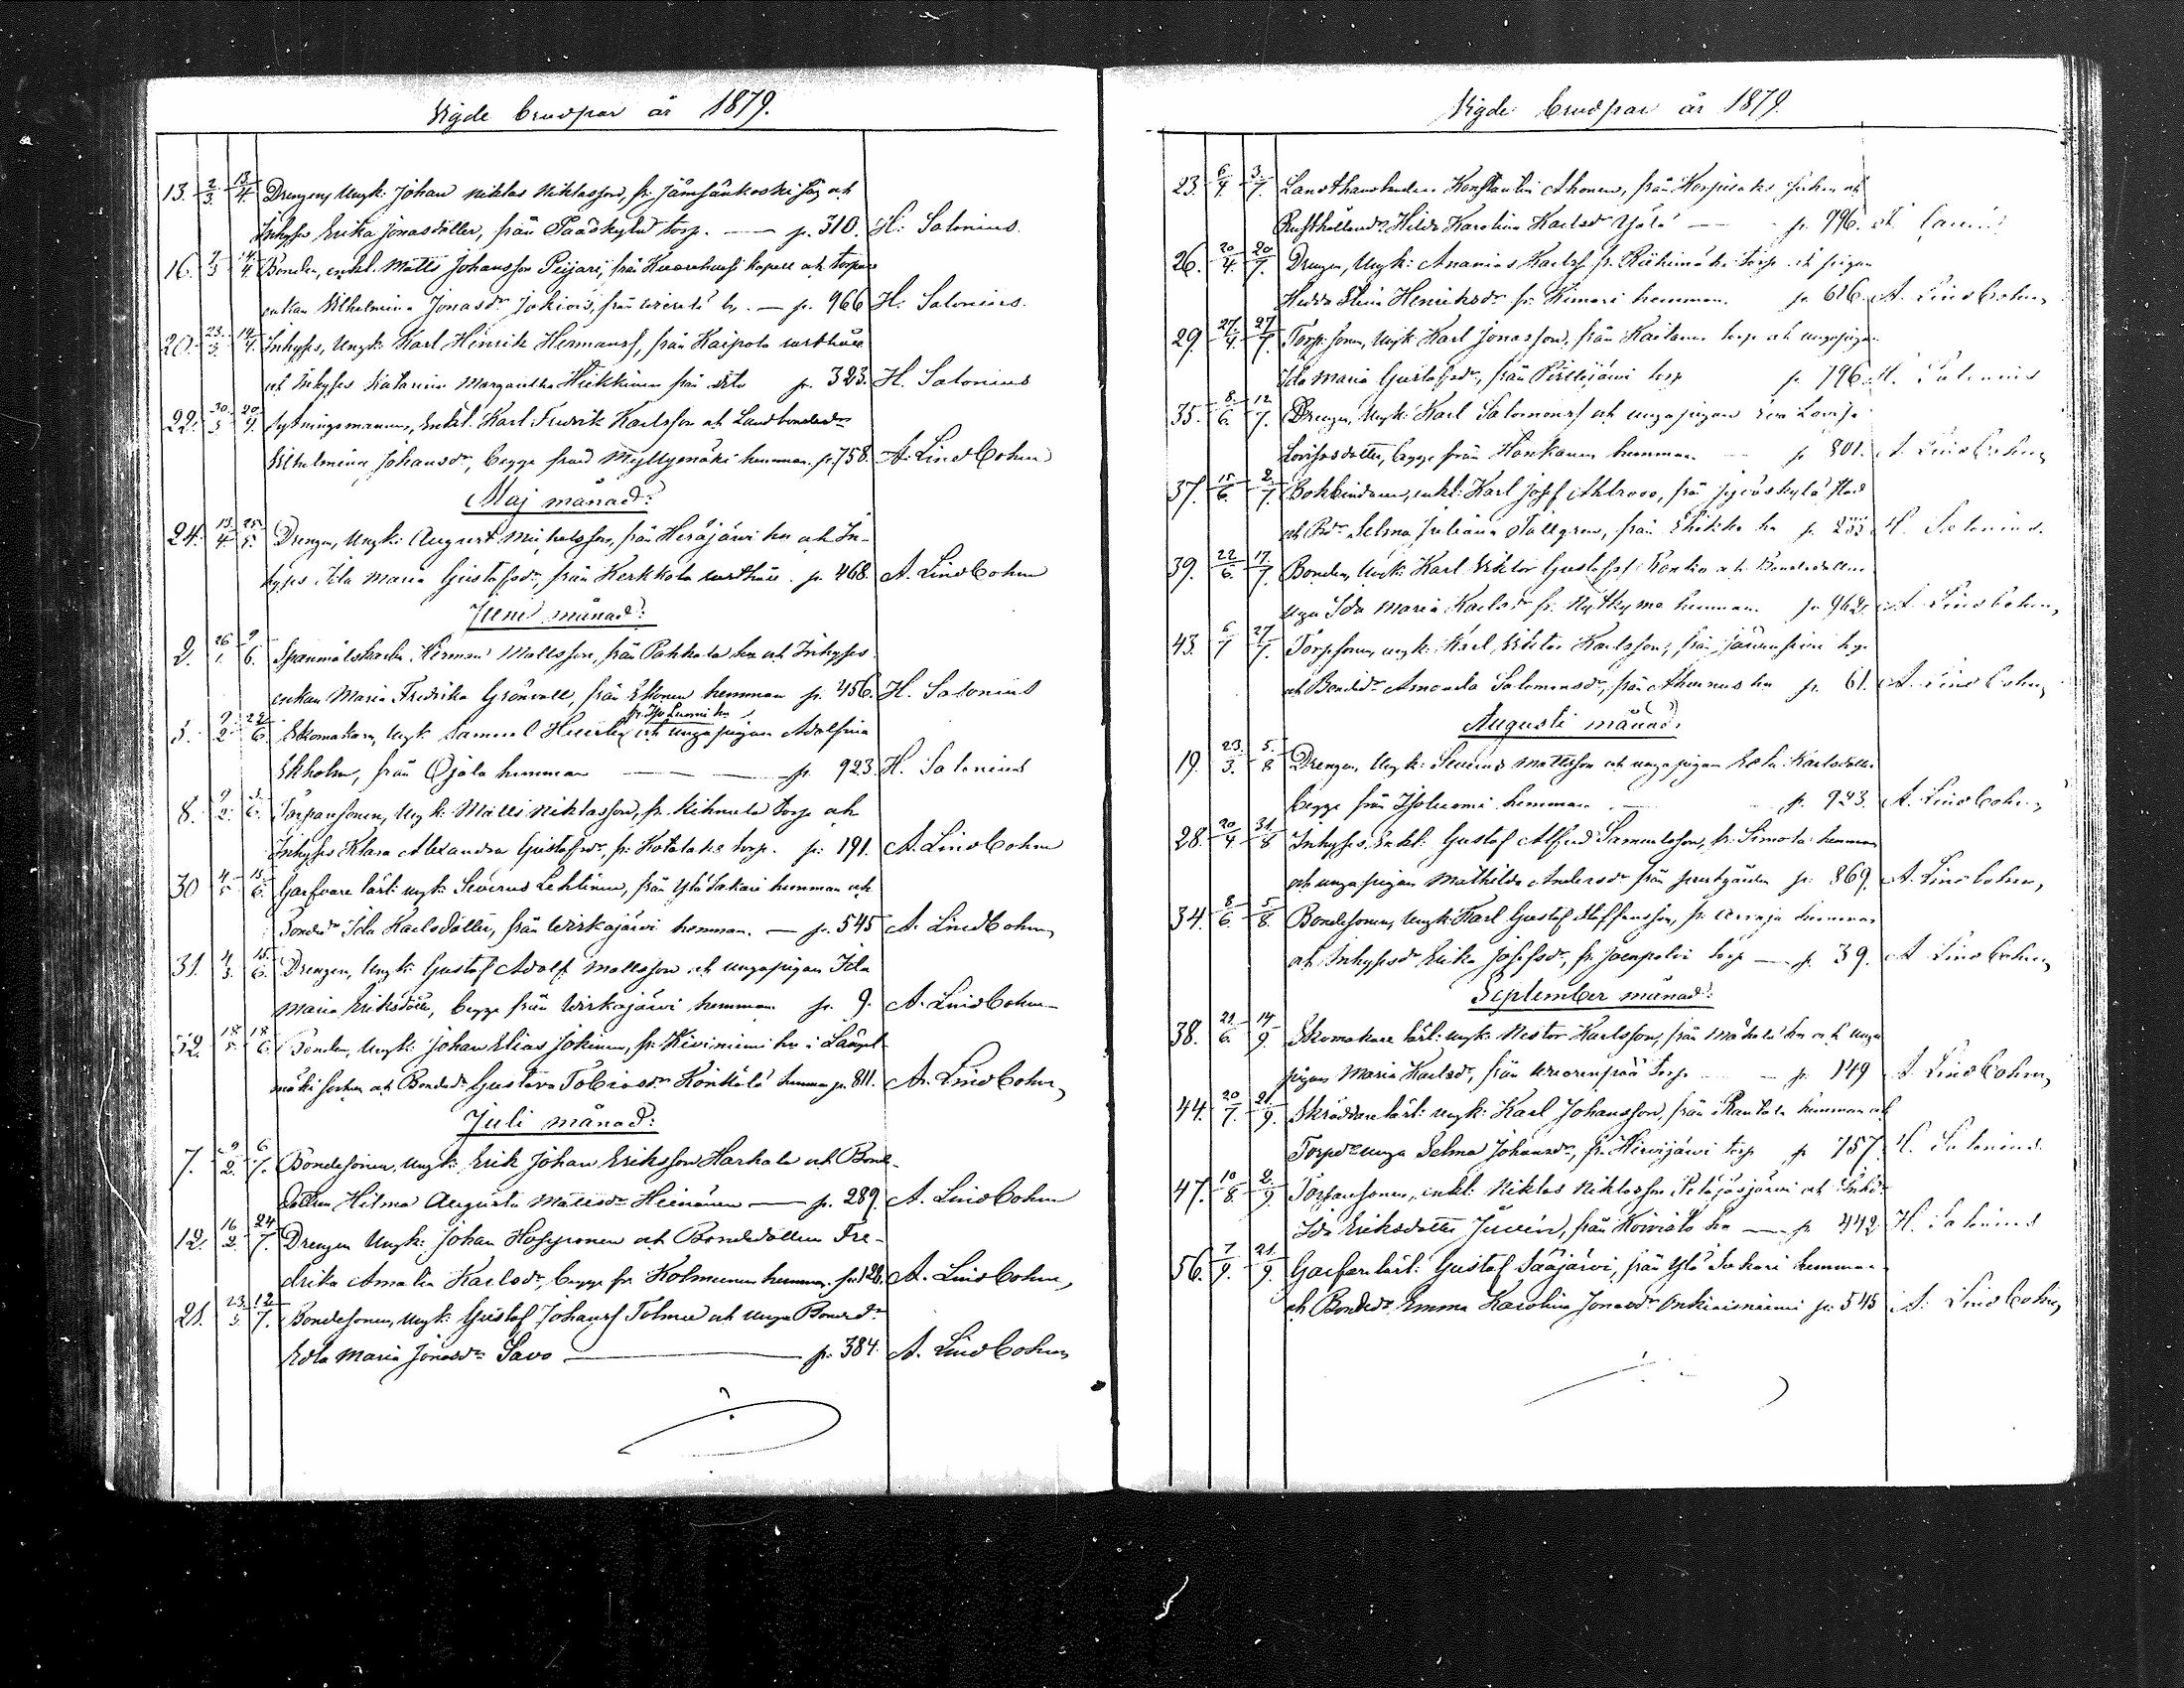 Vigde brudpar år 1879.
13. 2/3. 13/4. Drengen, Ungk: Johan Niklas Niklasson, fr. Jämsänkoski såg och
Inhyses Erika Jonasdotter, från Pääskylä torp. — p. 310. H. Salonius.
16. 2/3 14/4 Bonden, enkl. Matts Johansson Peijari, från Kuorehvesi kapell och torpare
enkan Wilhelmina Jonasdr Jokiois, från — p. 966 H. Salonius.
20. 23/3. 14/4. Inhyses, Ungk: Karl Hinrik Hermanss, från Kaipola rusthåll
och Inhyses Katarina Margaretha Hiekkinen från dito p. 323. H. Salonius
22. 30/3 20/4. Sytningsmannen, Enkl. Karl Fredrik Karlsson och Landbondedr
Wilhelmina Johansdr, begge från Myllymäki hemman. p. 758. A. Lindbohm
Maj månad:
24. 13/4. 25/5. Drengen, Ungk: August Michelsson, från Heräjärvi hn och In-
hyses Ida Maria Gustafsdr, från Kerkkola rusthåll. p. 468. A. Lindbohm
Juni månad:
2. 26/1. 9/6. Spanmålskarlen Herman Mattsson, från Pakkala hn och Inhyses
enkan Maria Fredrika Grönvall, från Ekonen hemman p. 456. H. Salonius
fr. Iso Luomi hn
5. 9/2 22/6. Skomakaren, Ungk. Samuel och unga pigan Adolfina
Ekholm, från Ojala hemman — p. 923. H. Salonius
8. 9/2. /6. Torparesonen, Ungk: Matts Niklasson, fr. Kihnula torp och
Inhyses Klara Alexandra Gustafsdr, fr. torp. p. 191. A. Lindbohm
30 4/5 15/6. Garfvare lärl: ungk: Severus Lehtinen, från Ylä Sakari hemman och
Bondedr Ida Karlsdotter, från Wirkajärvi hemman. — p. 545 A. Lindbohm
31. 4/5. 15/6. Drengen, Ungk: Gustaf Adolf Mattsson och ungapigan Ida
Maria Eriksdotter, begge från Wirkajärvi hemman p. 9. A. Lindbohm
32. 18/5. 18/6. Bonden, Ungk: Johan Elias Jokinen, fr. Kiviniemi hn i Längel-
mäki socken och Bondedr Gustava Tobiasdr Könkölä hemman p. 811. A. Lindbohm
Juli månad:
7. 9/2. 6/7. Bondesonen, Ungk: Erik Johan Eriksson Harkala och Bond-
dottren Hilma Augusta Mattsdr Heinänen — p. 289. A. Lindbohm
12. 16/2. 24/7. Drengen Ungk: Johan Hosiponen och Bondedottren Fre-
drika Amalia Karlsdr, begge fr. Kolmunen hemman. p. 128. A. Lindbohm
21. 23/3 12/7. Bondesonen, Ungk: Gustaf Johanss Tolmu och unga Bonddr
Edla Maria Jonasdr Savo — p. 384. A. Lindbohm
Vigde brudpar år 1879.
23. 6/4. 3/7. Landthandlanden Konstantin Ahonen, från Korpilaks socken och
Rusthållaredr Hilda Karolina Karlsdr — p. 796.
26. 20/4. 20/7. Drengen, Ungk: Ananias Karlss fr. Riihimäki torp och pigan
Hulda Elina Henriksdr fr. hemman. p. 616. A. Lindbohm
29. 27/4. 27/7. Torpsonen, Ungk: Karl Jonasson, från torp och ungapigan
Ida Maria Gustafsdr, från torp p. 796. H. Salonius
35. 8/6. 12/7. Drengen, Ungk: Karl Salomonss och ungapigan Eva Lovisa
Lovisasdotter, begge från Hankanen hemman p. 801. A. Lindbohm
37. 15/6. 2/7. Bokbindaren, enkl: Karl Josef Ahlroos, från Jyväskylä stad
och Bdr Selma Juliana Tallgren, från hn p. 233 H. Salonius.
39. 22/6. 17/7. Bonden, Ungk: Karl Viktor Gustafss Rantio och Bondedottren
unga Ida Maria Karlsdr fr. Nytkyme hemman p. 962. A. Lindbohm
43. 6/7 27/7. Torpsonen, ungk: Karl Viktor Karlsson, från torp
och Bondedr Amanda Salomonsdr, från hn p. 61. A. Lindbohm
Augusti månad.
19. 23/3. 5/8 Drengen, Ungk: Severus Mattsson och ungapigan Edla Karlsdotter
begge från Isoluomi hemman. — p. 923. A. Lindbohm
28. 20/4 31/8 Inhyses. Enkl: Gustaf Alfred Samuelsson, fr. Simola hemman
och unga pigan Mathilda Andersdr från prestgården p. 869. A. Lindbohm
34. 8/6. 5/8. Bondesonen, Ungk: Karl Gustaf Staffansson, fr. hemman
och Inhysesdr Erika Josefsdr, fr. torp — p. 39. A. Lindbohm
September månad:
38. 21/6. 14/9. Skomakare lärl: ungk: Nestor Karlsson, från Mäkelä hn och unga
pigan Maria Karlsdr, från Wuorenpää torp — p. 149 A. Lindbohm
44. 20/7. 21/9. Skräddare lärl: ungk: Karl Johansson, från Rantala hemman och
Torpdr unga Selma Johansdr, fr. Hirvijärvi torp p. 757 H. Salonius.
47. 10/8. 2/9. Torparesonen, enkl: Niklas Niklasson Petäjäsjärvi och Inhdr
Ida Eriksdotter, från Koivisto hn — p. 442 H. Salonius
56. 7/9. 21/9. Garfvare lärl: Gustaf Sääjärvi, från Ylä Sakari hemman
och Bondedr Emma Karolina Jonasdr Onkiaisniemi p. 545 A. Lindbohm